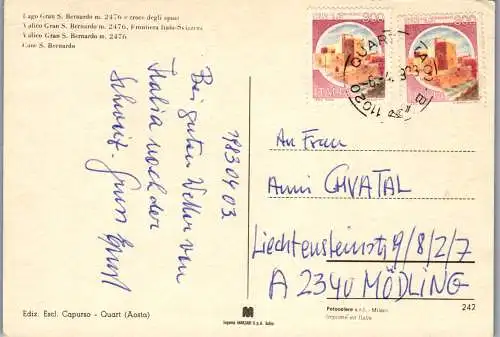 Lago Gran S. Bernardo m. 2476 e croce degli sposi
Valico Gran S. Bernardo m. 2476, Frontiera Italo-Svizzera
Valico Gran S. Bernardo m. 2476.
Cane S. Bernardo
300
300
ITALIA
11020 QUART
1983 04 03.
Bei guten Wetter von
Italia nach der
Schweiz. Gruss
An Frau
Anni CHVATAL
Liechtensteinstr 9/8/2/7
A 2340 MÖDLING
Ediz. Escl. Capurso - Quart (Aosta)
M
Fotocelere s.r.l. - Milano
Imprimé en Italie
242